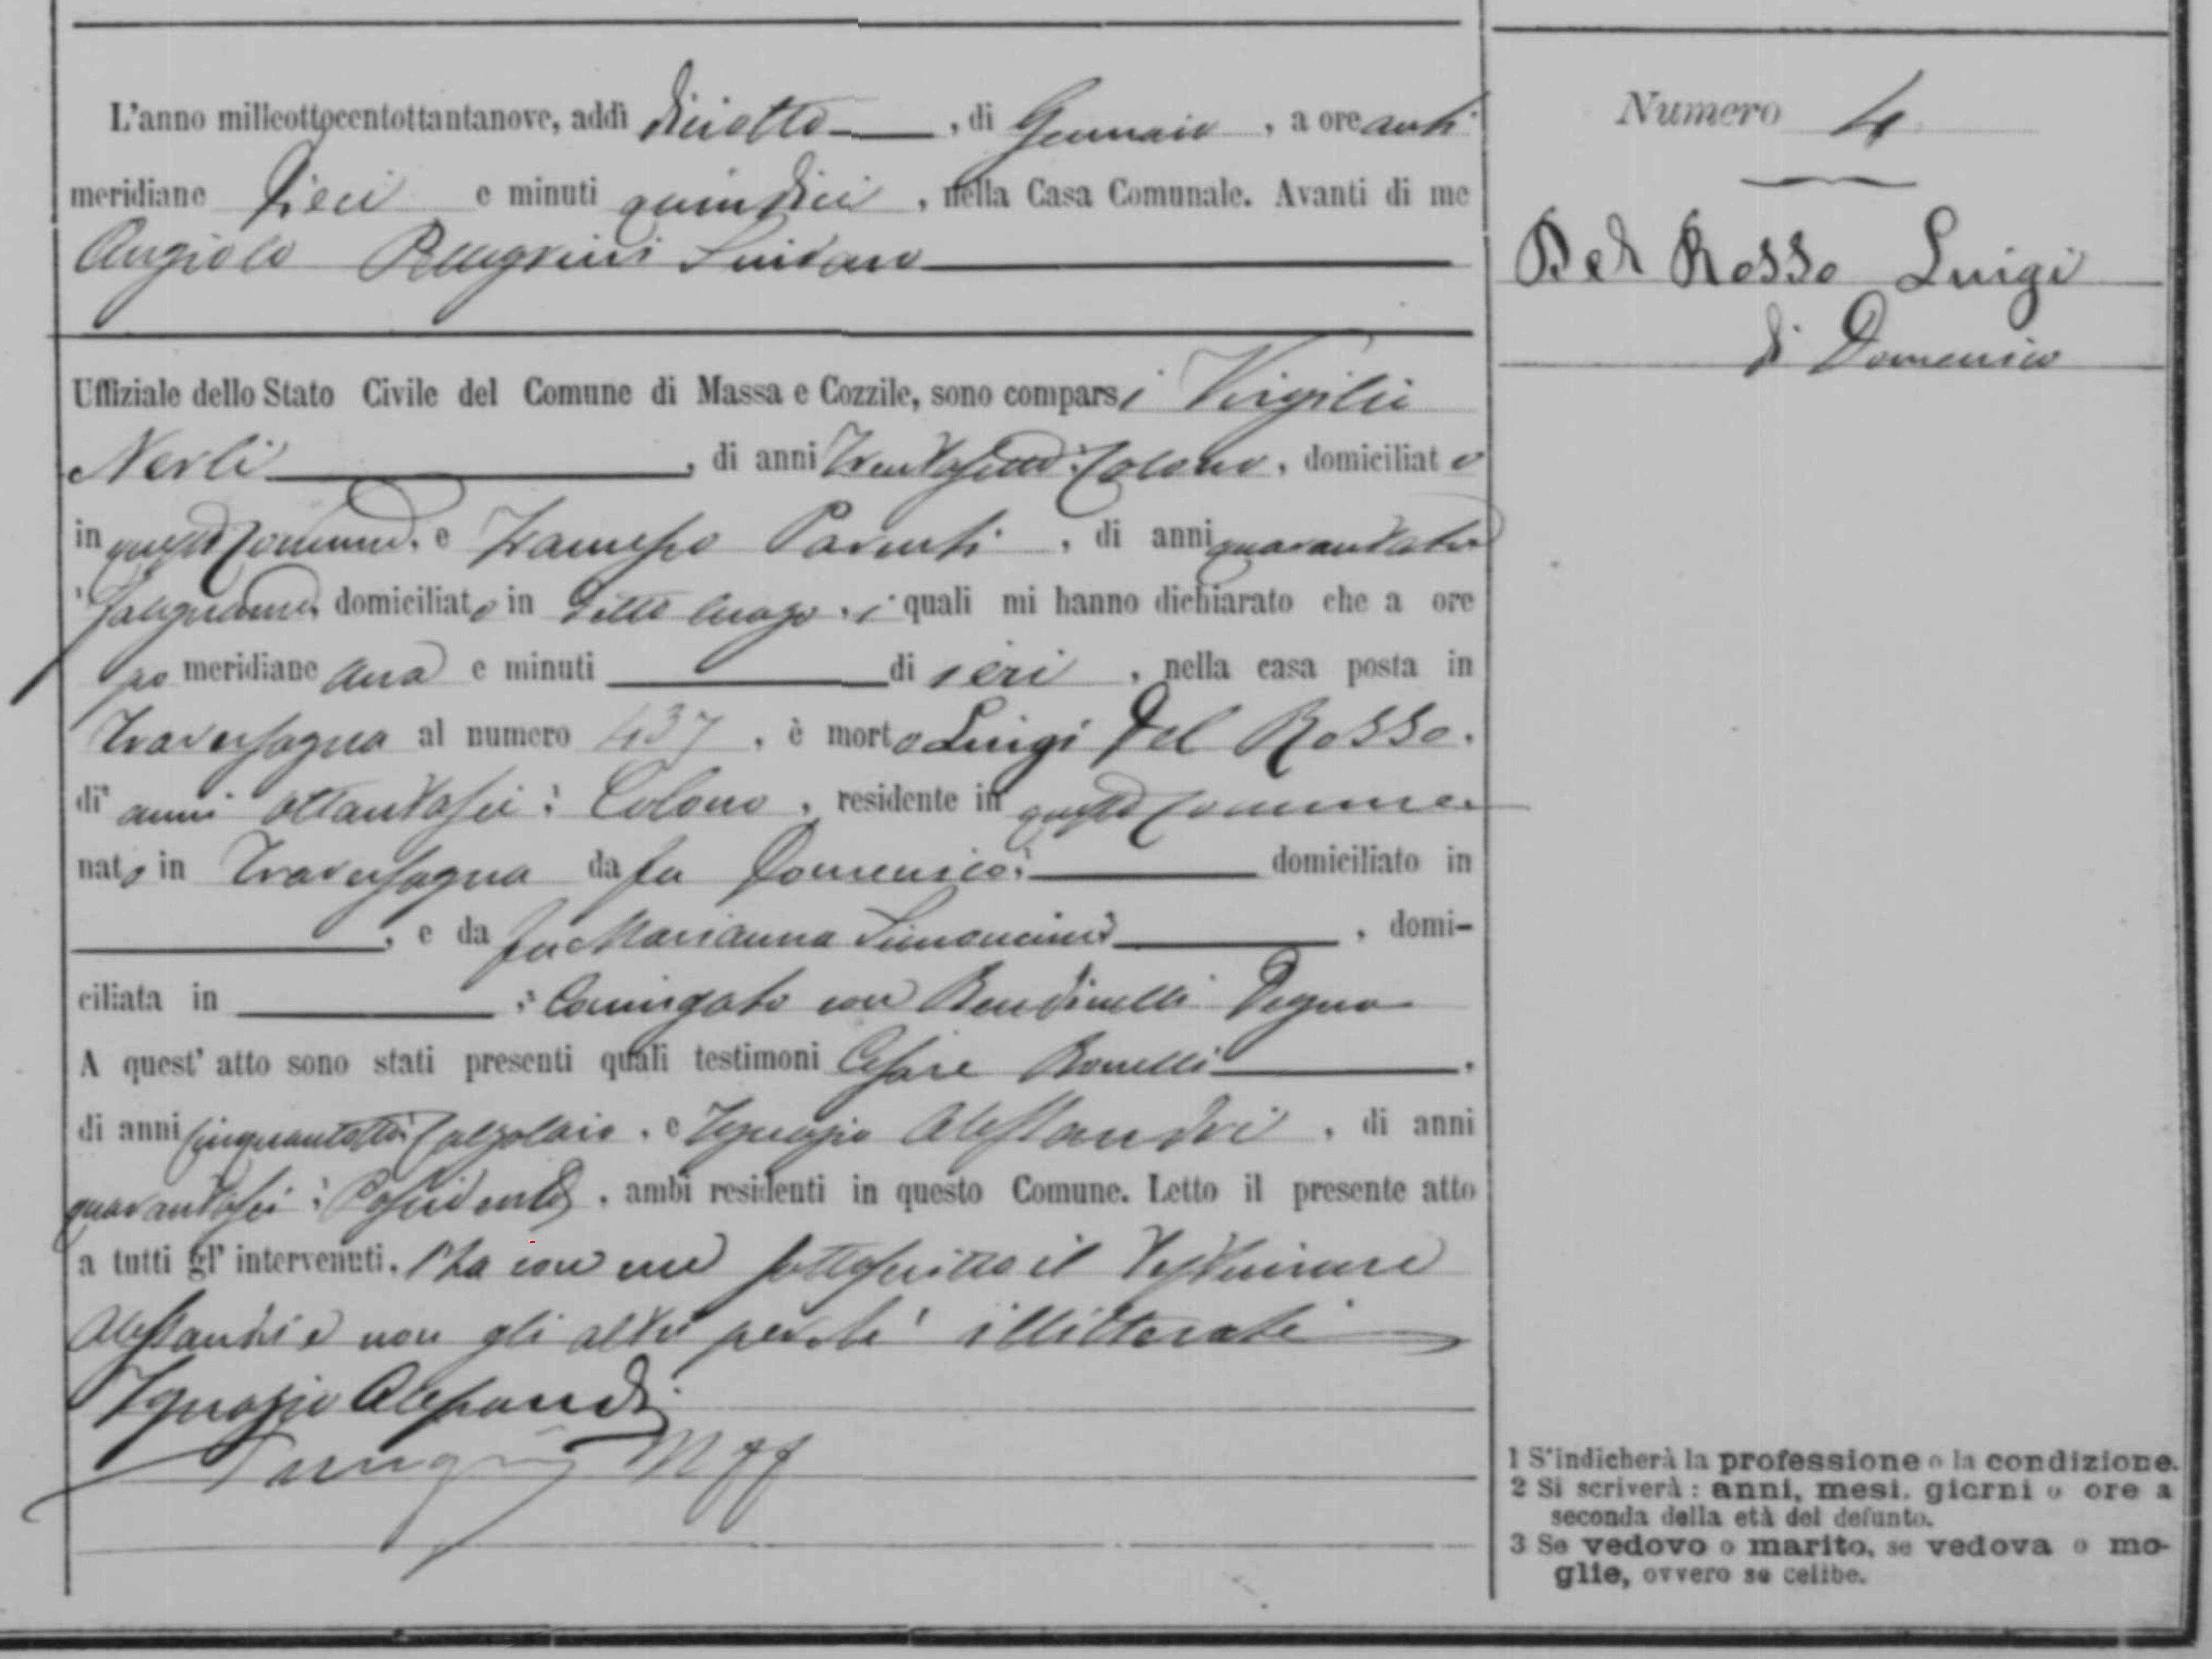 L'anno milleottocentottantanove, addì diciotto, di Gennaio, a ore anti
meridiane dieci e minuti quindici, nella Casa Comunale. Avanti di me
Angiolo Pellegrini Sindaco
Uffiziale dello Stato Civile del Comune di Massa e Cozzile, sono comparsi Virgilio
Nerli, di anni : Colono, domiciliato
in questo Comune, e Parenti, di anni
Falegname, domiciliato in detto luogo, i quali mi hanno dichiarato che a ore
po meridiane una e minuti di ieri, nella casa posta in
Traversagna al numero 437, è morto Luigi Del Rosso.
di anni ottantasei : Colono, residente in questo Comune
nato in Traversagna da fu Domenico: domiciliato in
, e da fu Marianna Simoncini, domi-
ciliata in : Coniugato con Bendinelli Degna
A quest' atto sono stati presenti quali testimoni Cesare Bonelli,
di anni cinquantotto: Calzolaio, e Ignazio Alessandri, di anni
quarantasei : Possidente, ambi residenti in questo Comune. Letto il presente atto
a tutti gl' intervenuti, l'ha con me sottoscritto il Testimone
Alessandri e non gli altri perché illitterati
Ignazio Alessandri
Numero 4
Del Rosso Luigi
di Domenico
1 S'indicherà la professione o la condizione.
2 Si scriverà : anni, mesi, giorni o ore a
seconda della età del defunto.
3 Se vedovo o marito, se vedova o mo-
glie, ovvero se celibe.